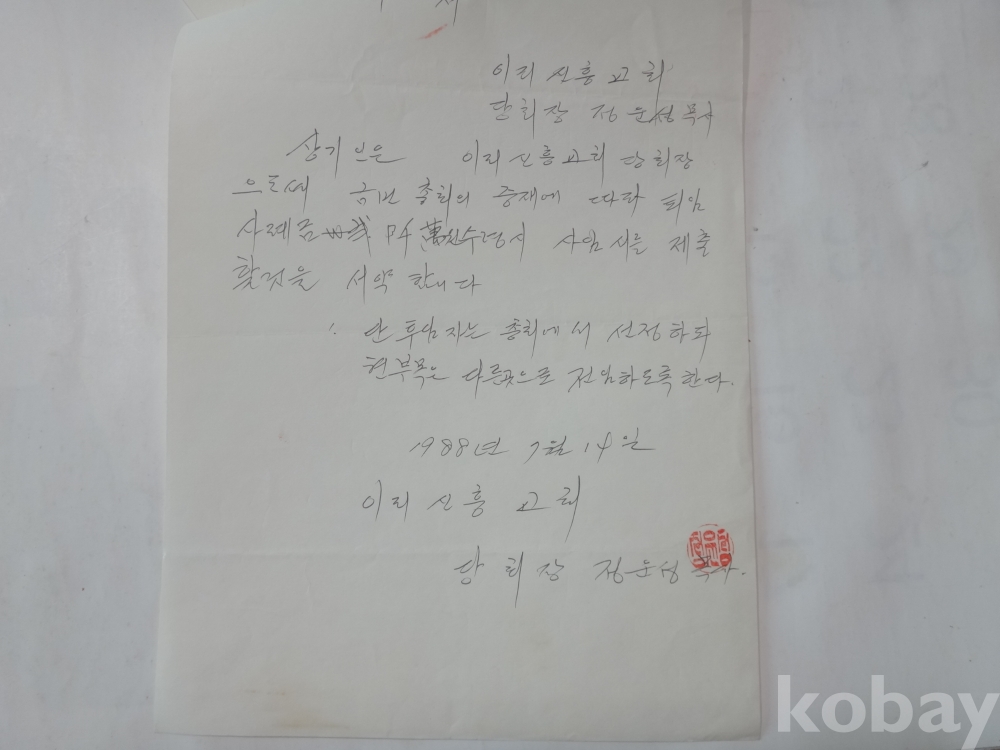 서
이리 신흥 교회
당회장 정운성 목사
상기 인은 이리신흥교회 당회장
으로써 금번 총회의 중재에 따라 퇴임
사례금 萬원수령시 사임서를 제출
할것을 서약합니다
단 후임자는 총회에서 선정하되
현부목은 다른곳으로 전임하도록한다.
1988년 7월 14일
이리 신흥 교회
당회장 정운성 목사.
kobay